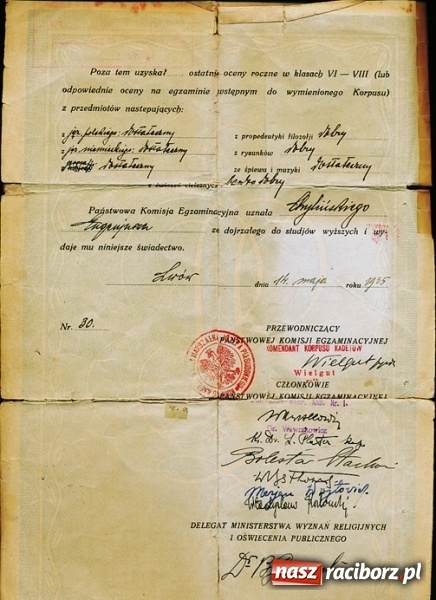 Poza tem uzyskał ostatnie oceny roczne w klasach VI – VIII (lub
odpowiednie oceny na egzaminie wstępnym do wymienionego Korpusu)
z przedmiotów następujących:
z jęz. polskiego: dostateczny z propedeutyki filozofji dobry
z jęz. niemieckiego: dostateczny z rysunków dobry
dostateczny ze śpiewu i muzyki dostateczny
z ćwiczeń cielesnych bardzo dobry
Państwowa Komisja Egzaminacyjna uznała Chylińskiego
Eugenjusza za dojrzałego do studjów wyższych i wy-
daje mu niniejsze świadectwo.
Lwów dnia 14 maja roku 1935
Nr. 30.
PRZEWODNICZĄCY
PAŃSTWOWEJ KOMISJI EGZAMINACYJNEJ
KOMENDANT KORPUSU KADETÓW
Wielgut
Wielgut
CZŁONKOWIE
PAŃSTWOWEJ KOMISJI EGZAMINACYJNEJ
Nr. 1.
Dr. Wawrzkowicz
K. Dr. L. Plater
Bolesław
Marjan Wojtowicz
Władysław
DELEGAT MINISTERSTWA WYZNAŃ RELIGIJNYCH
I OŚWIECENIA PUBLICZNEGO
Dr B
nasz raciborz.pl